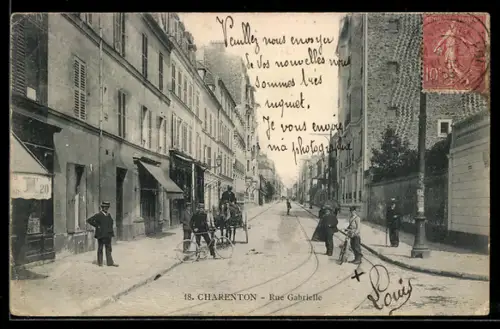 Veuillez nous envoyer
de vos nouvelles nous
sommes très
inquiet.
Je vous envoie
ma photographie
10
20
+
Louis
18. CHARENTON - Rue Gabrielle